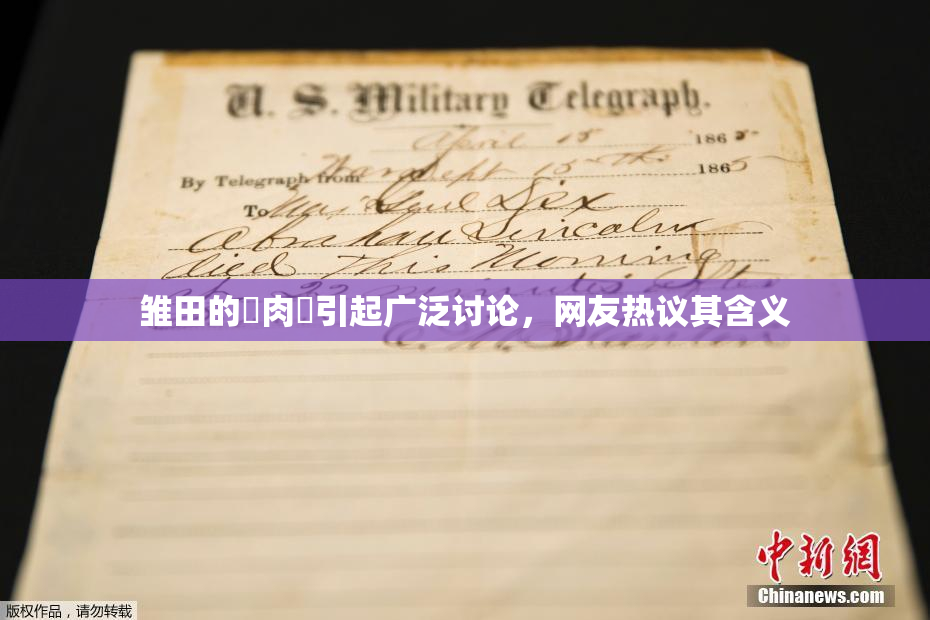 U. S. Military Telegraph.
April 15 1865
By Telegraph from War Dept 15th 1865
To Maj Genl Dix
Abraham Lincoln
died This Morning
22 minutes after
雏田的▯肉▯引起广泛讨论，网友热议其含义
中新网
Chinanews.com
版权作品，请勿转载